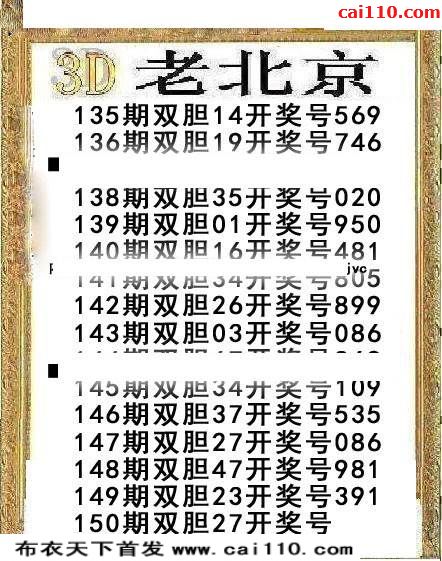 cai110.com
3D 老北京
135期双胆14开奖号569
136期双胆19开奖号746
138期双胆35开奖号020
139期双胆01开奖号950
140期双胆16开奖号481
jvc
141期双胆34开奖号805
142期双胆26开奖号899
143期双胆03开奖号086
145期双胆34开奖号109
146期双胆37开奖号535
147期双胆27开奖号086
148期双胆47开奖号981
149期双胆23开奖号391
150期双胆27开奖号
布衣天下首发 www.cai110.com